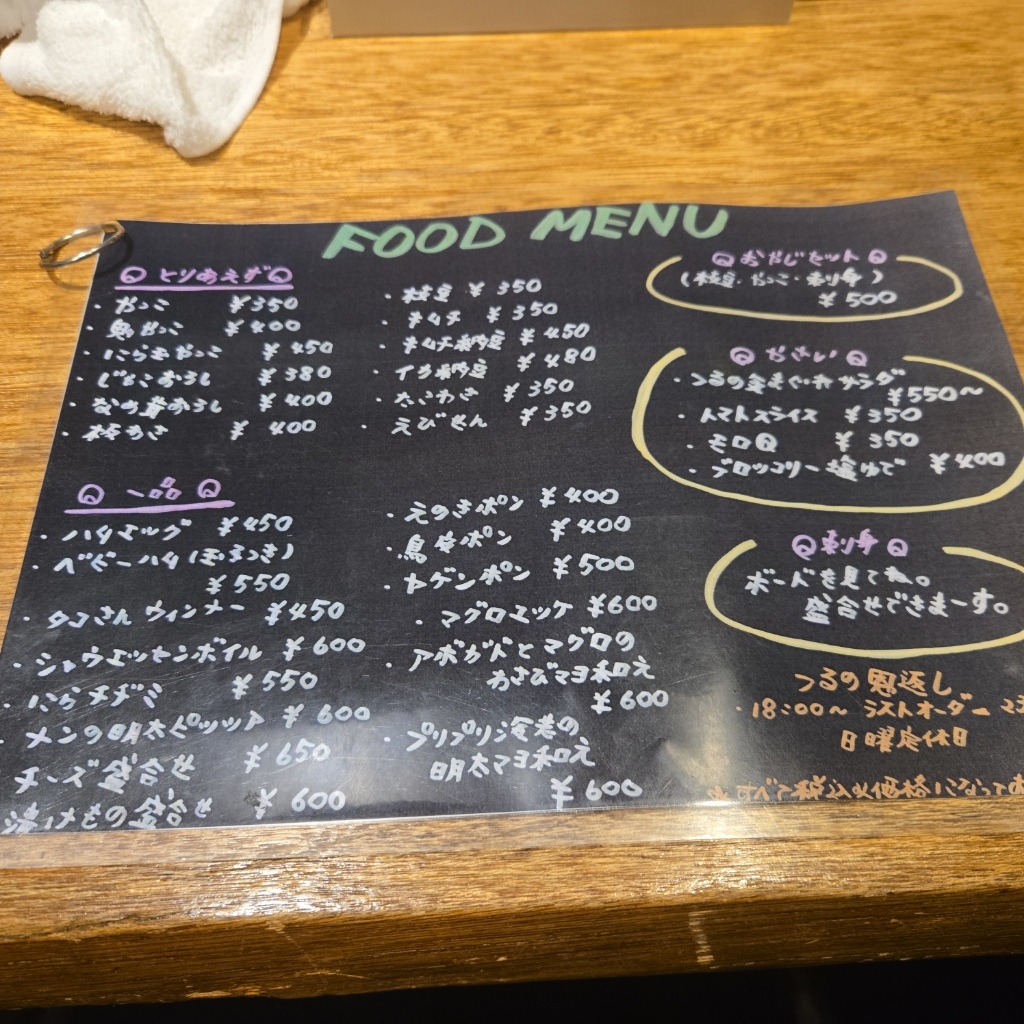 FOOD MENU
とりあえず
・やっこ ¥350
・鬼やっこ ¥400
・にら玉やっこ ¥450
・じゃこおろし ¥380
・なめ茸おろし ¥400
・板わさ ¥400
・枝豆 ¥350
・キムチ ¥350
・キムチ納豆 ¥450
・イカ納豆 ¥480
・たこわさ ¥350
・えびせん ¥350
一品
・ハムエッグ ¥450
・ベビーハム(ほうき)
¥550
・タコさんウィンナー ¥450
・シャウエッセンボイル ¥600
・にらチヂミ ¥550
・メンの明太ピッツア ¥600
チーズ盛合せ ¥650
漬けもの盛合せ ¥600
・えのきポン ¥400
・鳥皮ポン ¥400
・ヤゲンポン ¥500
・マグロユッケ ¥600
・アボガドとマグロの
わさびマヨ和え
¥600
・プリプリ海老の
明太マヨ和え
¥600
おやじセット
(枝豆・やっこ・刺身)
¥500
やさい
・つるの気まぐれサラダ
¥550~
・トマトスライス ¥350
・モロQ ¥350
・ブロッコリー塩ゆで ¥400
刺身
ボードを見てね。
盛合せできまーす。
つるの恩返し
・18:00~ ラストオーダー
日曜定休日
※すべて税込み価格になって